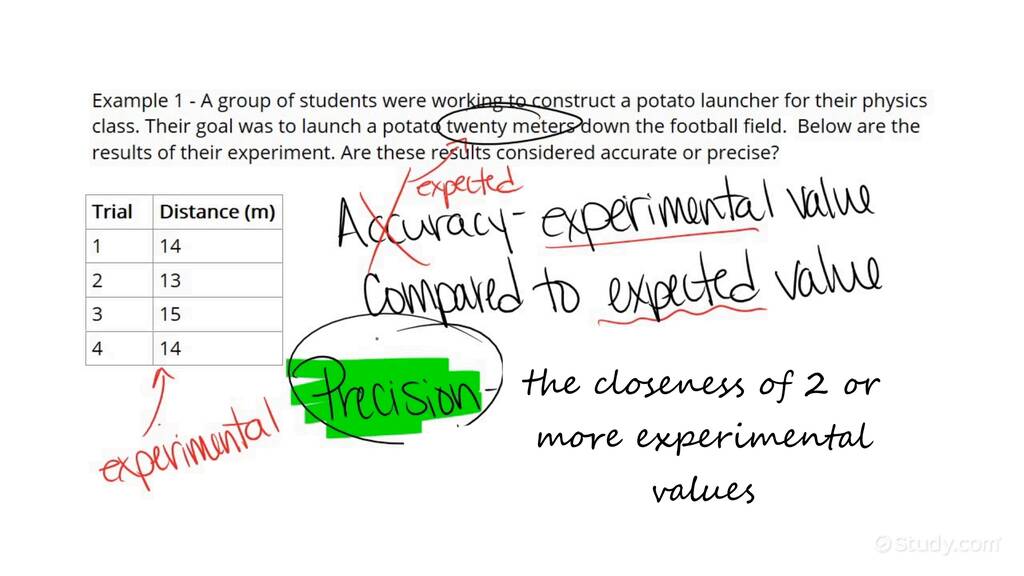 Example 1 - A group of students were working to construct a potato launcher for their physics
class. Their goal was to launch a potato twenty meters down the football field.  Below are the
results of their experiment. Are these results considered accurate or precise?
expected
Trial Distance (m)
1 14
2 13
3 15
4 14
experimental
Accuracy- experimental value
Compared to expected value
Precision-
the closeness of 2 or
more experimental
values
Study.com